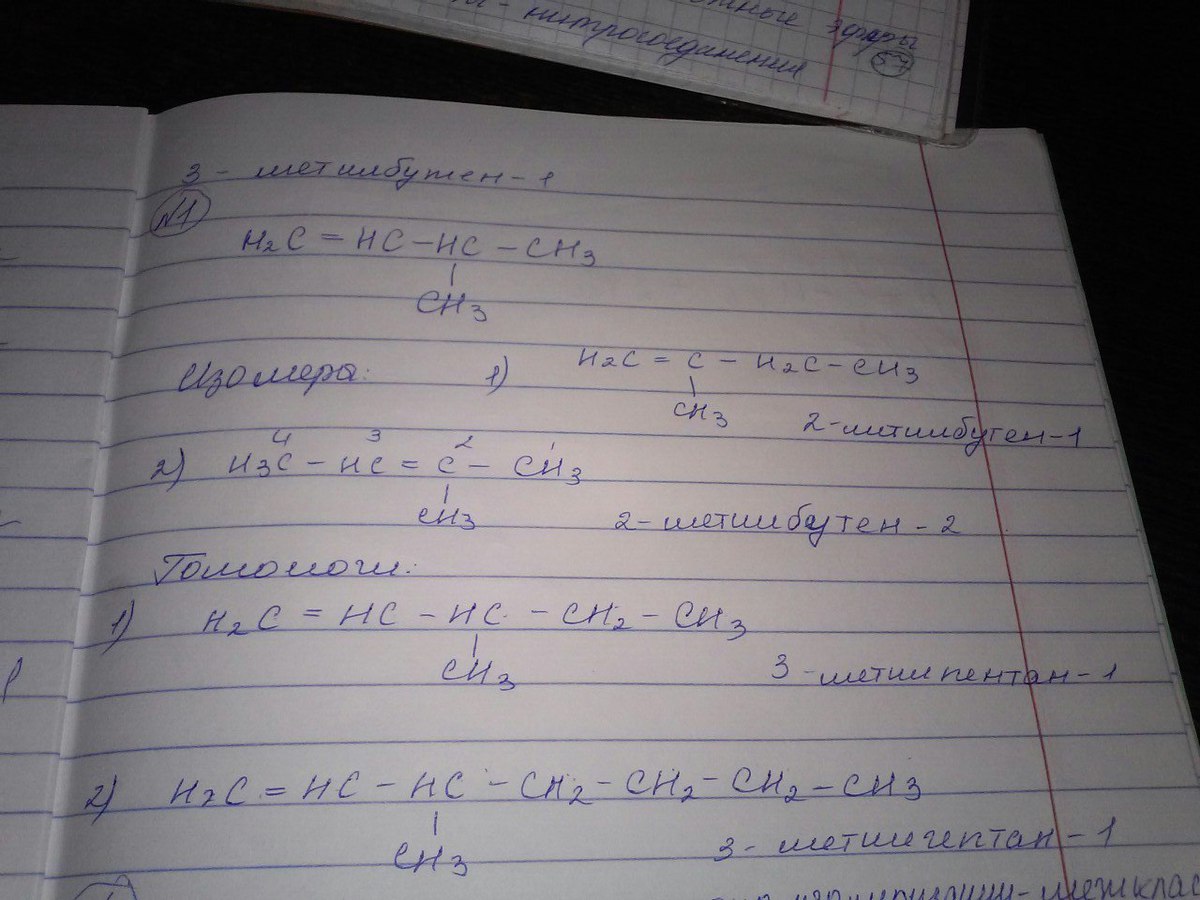 эфиры
- нитросоединения
57
3 - метилбутен-1
№1
H₂C = HC – HC – CH₃
CH₃
Изомеры:
1) H₂C = C – H₂C – CH₃
CH₃
2-метилбутен-1
4 3 2 1
2) H₃C – HC = C – CH₃
CH₃
2-метилбутен-2
Гомологи:
1) H₂C = HC – HC – CH₂ – CH₃
CH₃
3-метилпентан-1
2) H₂C = HC – HC – CH₂ – CH₂ – CH₂ – CH₃
CH₃
3-метилгептан-1